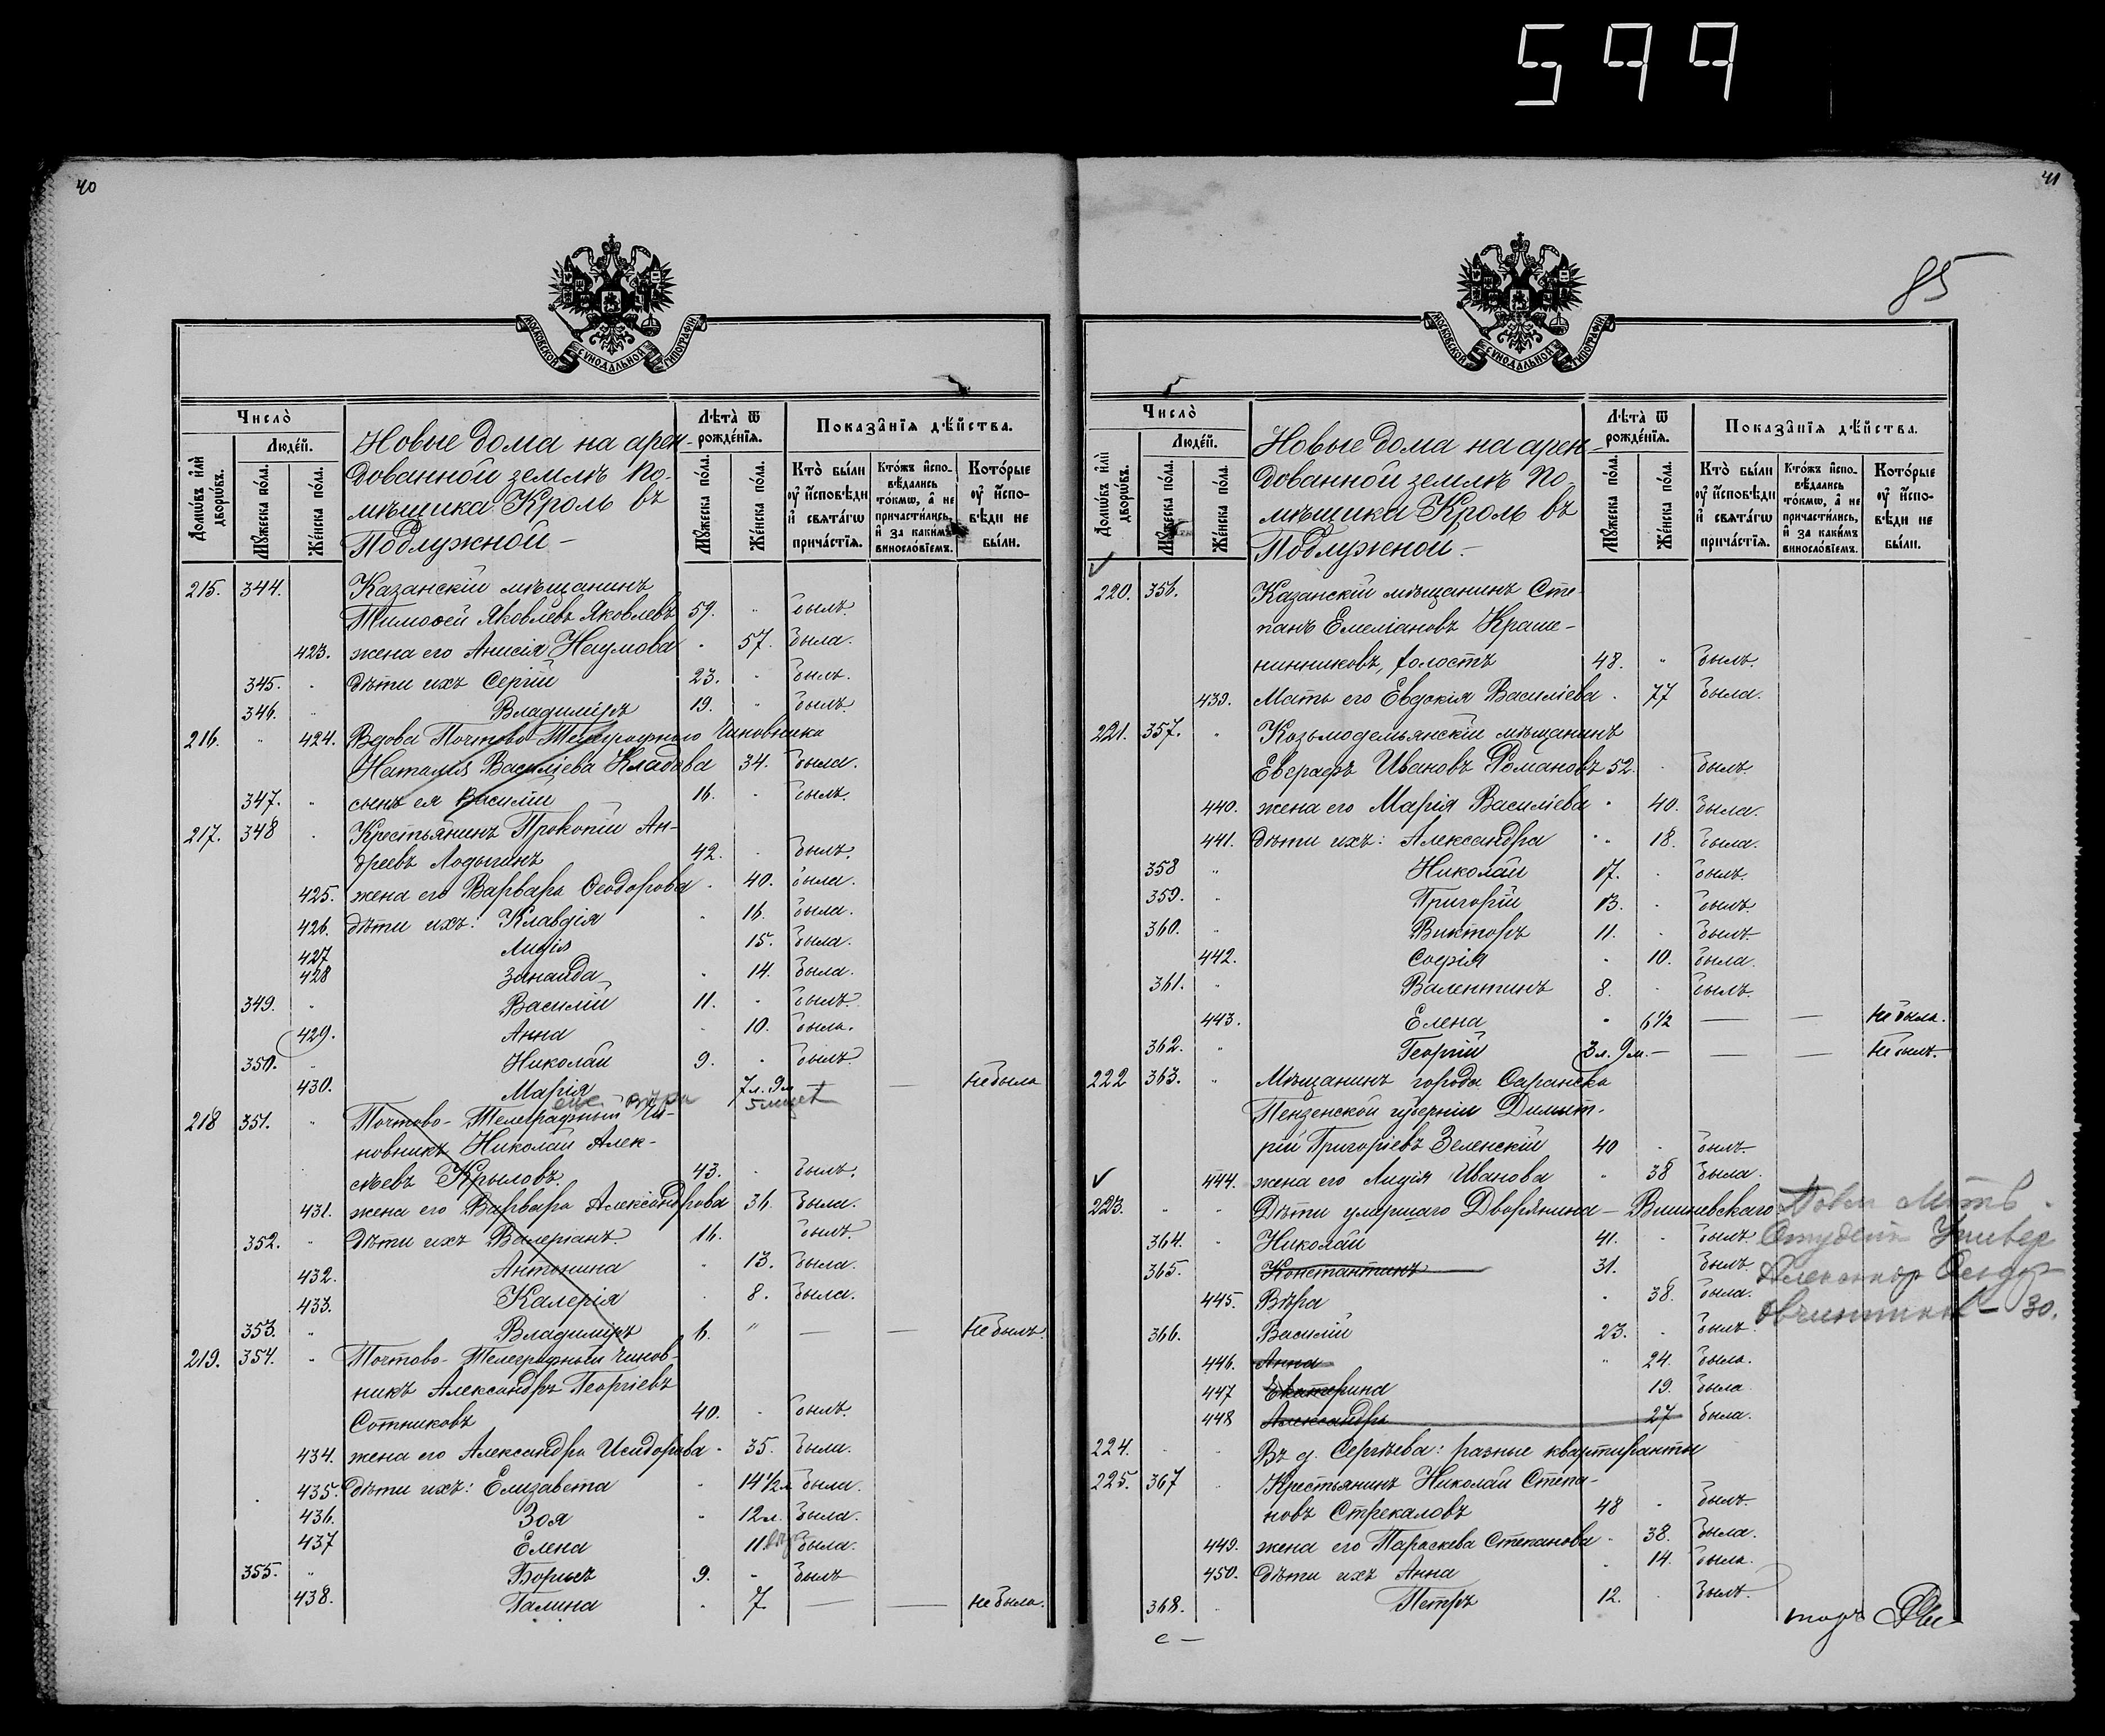 599
40
МОСКОВСКОЙ СѴНОДАЛЬНОЙ ТИПОГРАФІИ
Число̀
Люде́й.
Домѡ́въ и҆лѝ дворѡ́въ.
Мꙋ́жеска по́ла.
Же́нска по́ла.
Новые дома на арен-
дованной землѣ По-
мѣщика Кроль въ
Подлужной —
Лѣ́та ѿ рожде́нїя.
Мꙋ́жеска по́ла.
Же́нска по́ла.
Показа̂нїя дѣ́йства.
Кто̀ бы́ли ᲂу҆ и҆сповѣ́ди и҆ свята́гѡ прича́стїя.
Кто́жъ и҆спо-вѣ́дались то́кмѡ, а҆ не причасти́лись, и҆ за каки́мъ виносло́вїемъ.
Кото́рые ᲂу҆ и҆спо-вѣ́ди не бы́ли.
215. 344. Казанскій мѣщанинъ
Тимоѳей Яковлевъ Яковлевъ 59. " былъ.
423. жена его Анисія Наумова " 57. была.
345. " дѣти ихъ Сергій 23. " былъ.
346. " Владиміръ 19. " былъ.
216. " 424. Вдова Почтово-Телеграфнаго Чиновника
Наталия Василіева Кладова 34. была.
347. " сынъ ея Василій 16. " былъ.
217. 348 " Крестьянинъ Прокопій Ан-
дреевъ Лодыгинъ 42. " былъ.
425. жена его Варвара Ѳеодорова " 40. была.
426. дѣти ихъ: Клавдія " 16. была.
427 Лидія 15. была.
428 Зинаида " 14. была.
349. " Василій 11. " былъ.
429. Анна " 10. была.
350. " Николай 9. " былъ.
430. Марія 7л. 9м — — Не была
еще Вѣра 5 лет
218 351. " Почтово-Телеграфный Чи-
новникъ Николай Алек-
сѣевъ Крыловъ. 43. " былъ.
431. жена его Варвара Александрова 36. была.
352. " Дѣти ихъ Валеріанъ 16. былъ.
432. Антонина " 13. была.
433. Калерія " 8. была.
353. " Владиміръ 6. " — — Не былъ.
219. 354. " Почтово-Телеграфный чинов-
никъ Александръ Георгіевъ
Сотниковъ 40. " былъ.
434. жена его Александра Исидорова " 35. была.
435. Дѣти ихъ: Елизавета " 14 1/2 л была.
436. Зоя " 12л. была.
437 Елена 11. была.
355. " Борисъ 9. " былъ
438. Галина " 7. — — Не была.
41
85
МОСКОВСКОЙ СѴНОДАЛЬНОЙ ТИПОГРАФІИ
Число̀
Люде́й.
Домѡ́въ и҆лѝ дворѡ́въ.
Мꙋ́жеска по́ла.
Же́нска по́ла.
Новые дома на арен-
дованной землѣ По-
мѣщика Кроль въ
Подлужной. —
Лѣ́та ѿ рожде́нїя.
Мꙋ́жеска по́ла.
Же́нска по́ла.
Показа̂нїя дѣ́йства.
Кто̀ бы́ли ᲂу҆ и҆сповѣ́ди и҆ свята́гѡ прича́стїя.
Кто́жъ и҆спо-вѣ́дались то́кмѡ, а҆ не причасти́лись, и҆ за каки́мъ виносло́вїемъ.
Кото́рые ᲂу҆ и҆спо-вѣ́ди не бы́ли.
220. 356. Казанскій мѣщанинъ Сте-
панъ Емеліановъ Краше-
нинниковъ, холостъ 48. " былъ.
439. Мать его Евдокія Василіева " 77 была.
221. 357. " Козьмодемьянскій мѣщанинъ
Евграфъ Ивановъ Романовъ 52. " былъ.
440. жена его Марія Василіева " 40. была.
441. Дѣти ихъ: Александра " 18. была.
358 " Николай 17. " былъ.
359. " Григорій 13. " былъ.
360. " Викторъ 11. " былъ.
442. Софія " 10. была.
361. " Валентинъ 8. " былъ.
443. Елена " 6 1/2 — — Не была.
362. " Георгій 3л. 9м. — — — Не былъ.
222 363. " Мѣщанинъ города Саранска
Пензенской губерніи Димит-
рій Григоріевъ Зеленскій 40 " былъ.
444. жена его Лидія Иванова " 38 была.
223. " " Дѣти умершаго Дворянина — Вишневскаго
364. " Николай 41. " былъ. Студент Универ
365. Константинъ 31. былъ. Александр
445. Вѣра " 38. была. 30.
366. Василій 23. " былъ.
446. Анна " 24. была.
447 Екатерина 19. была
448 Александра 27 была.
224. " " Въ д. Сергѣева: разные квартиранты
225. 367 " Крестьянинъ Николай Степа-
новъ Стрекаловъ 48 " былъ.
449. жена его Параскева Степанова " 38. была.
450. Дѣти ихъ Анна " 14. была.
368. " Петръ 12. " былъ.
с —